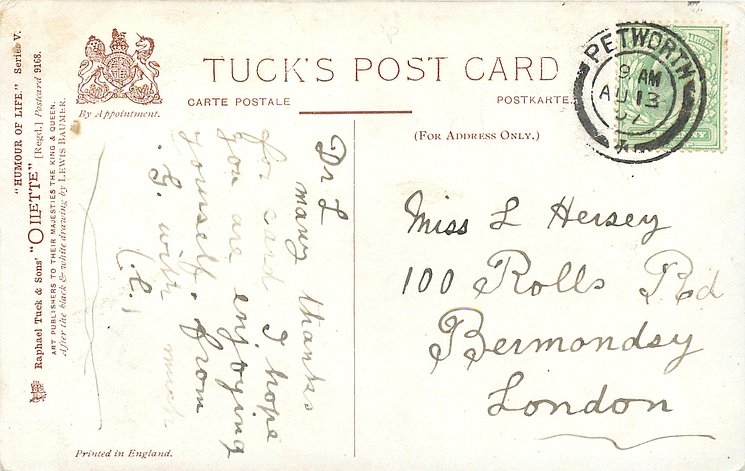 "HUMOUR OF LIFE." Series V.
Raphael Tuck & Sons' "OILETTE" [Regd.] Postcard 9168.
ART PUBLISHERS TO THEIR MAJESTIES THE KING & QUEEN.
After the black & white drawing by LEWIS BAUMER.
By Appointment.
TUCK'S POST CARD
CARTE POSTALE
POSTKARTE.
(FOR ADDRESS ONLY.)
PETWORTH
9 AM
AU 13
07
Dr L
many thanks
for card I hope
you are enjoying
yourself. from
G. with much
Miss L Hersey
100 Rolls Rd
Bermondsy
London
Printed in England.